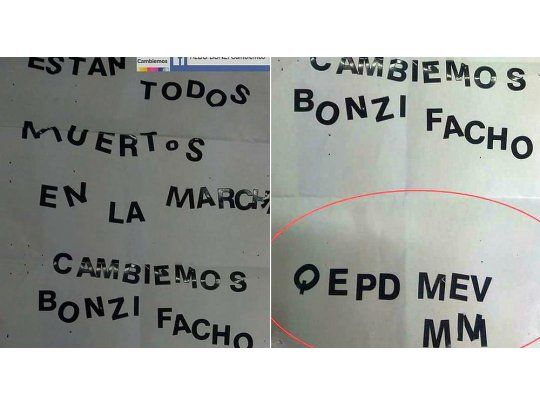 Cambiemos
ESTAN
TODOS
MUERTOS
EN LA MARCHA
CAMBIEMOS
BONZI FACHO
CAMBIEMOS
BONZI FACHO
QEPD MEV
MM